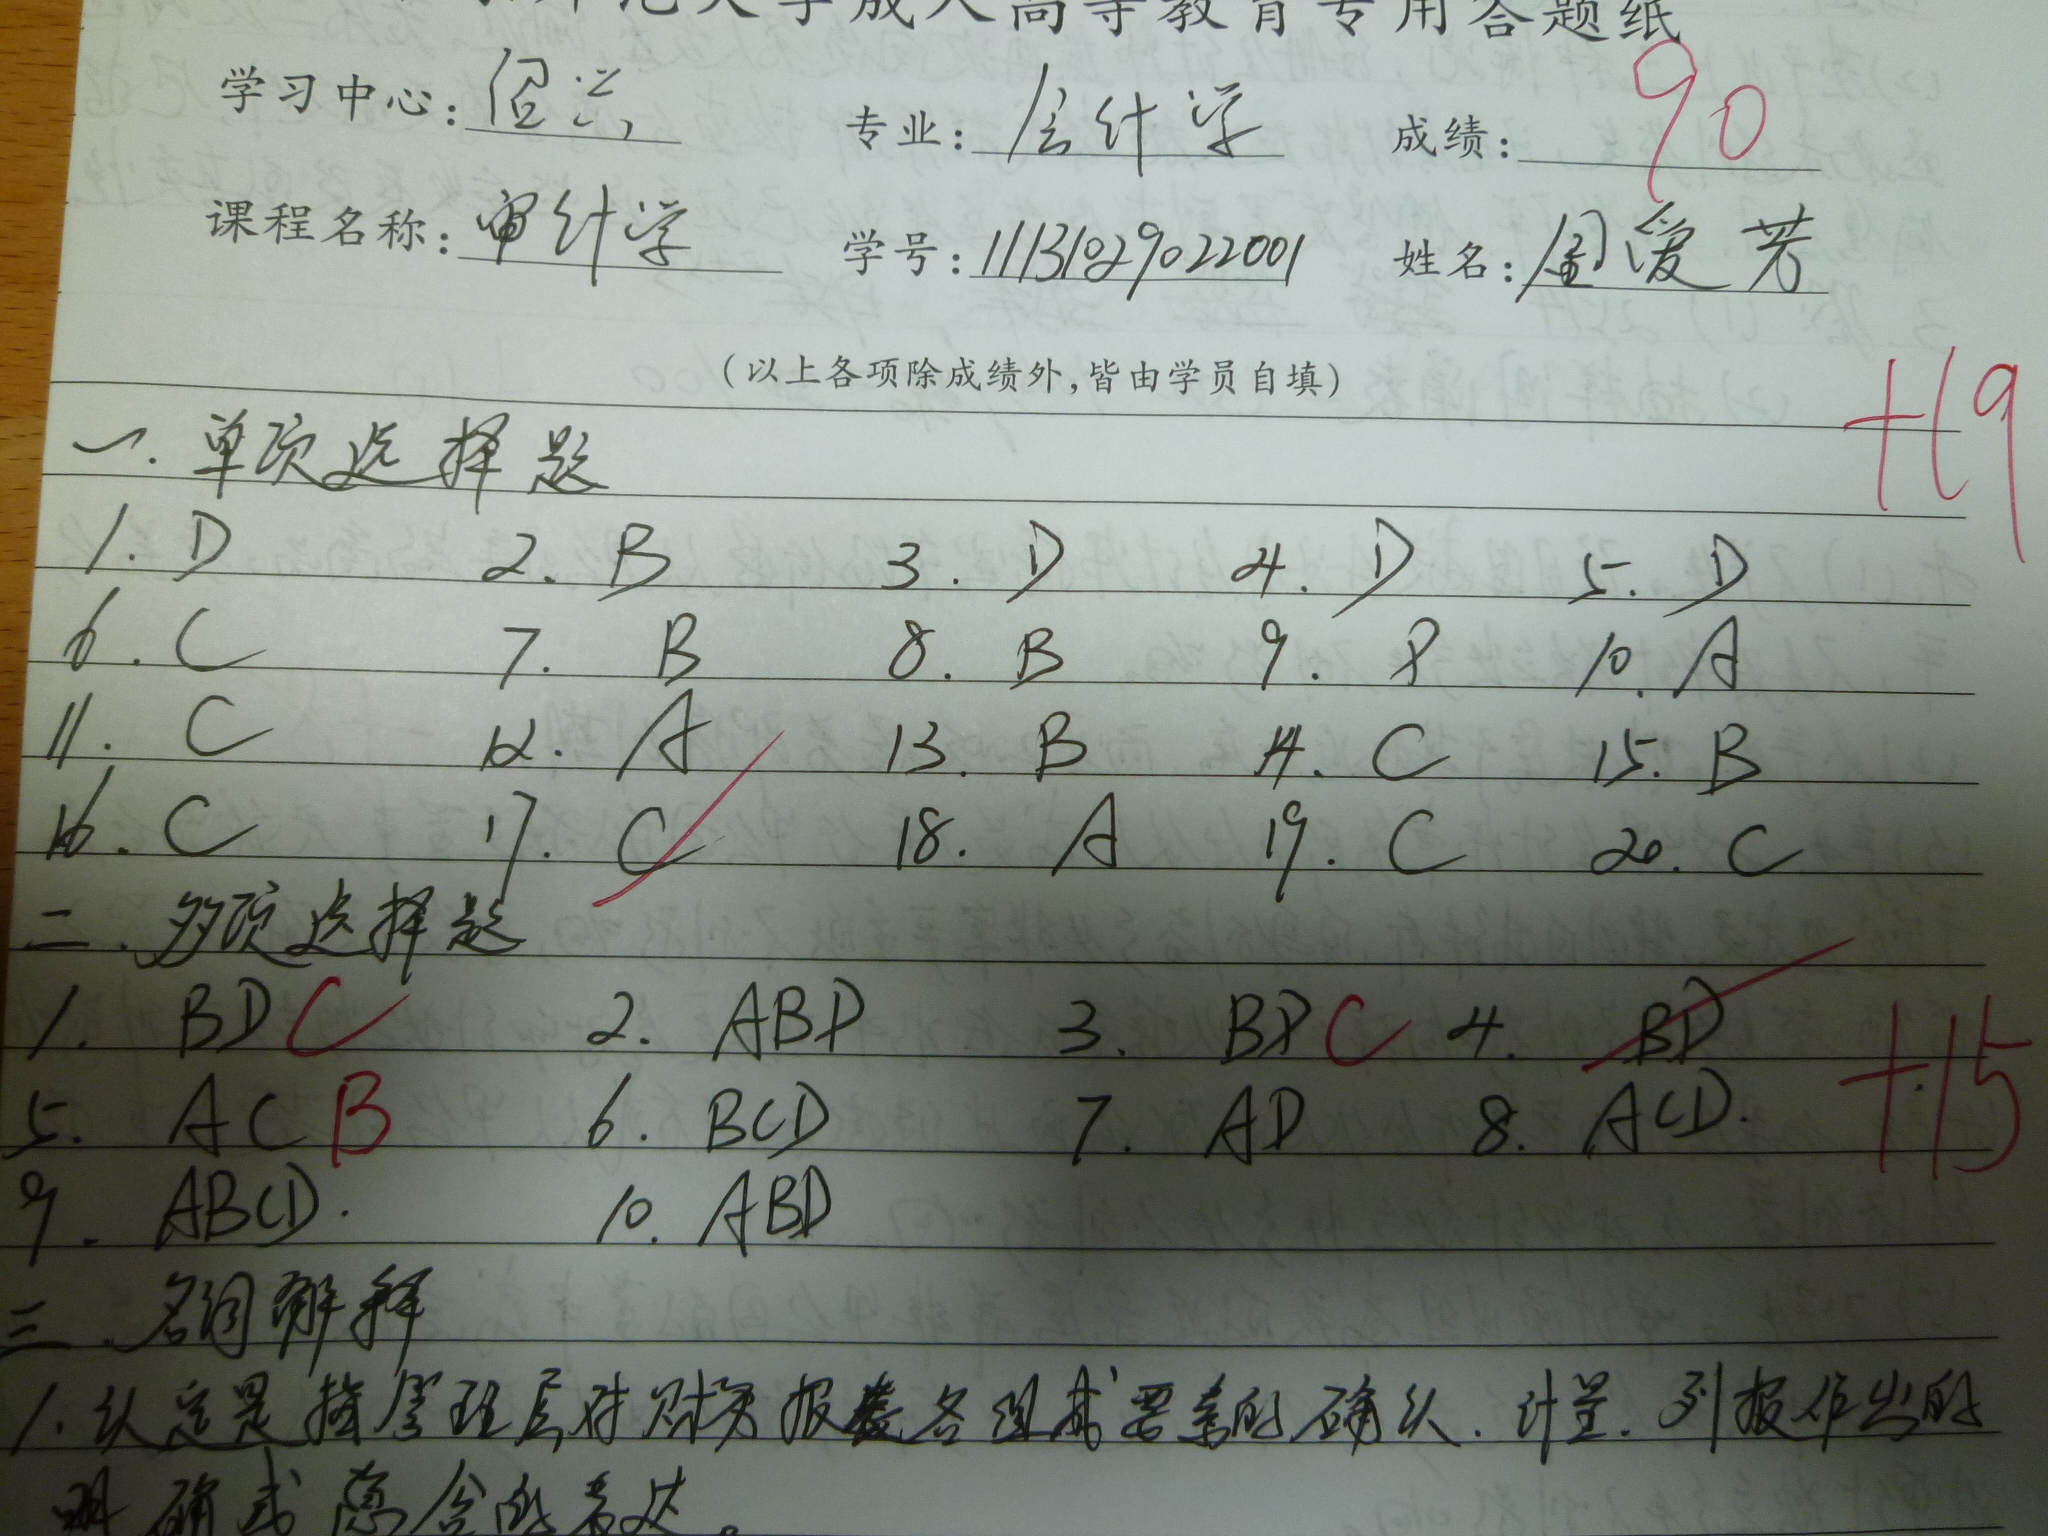 师范大学成人高等教育专用答题纸
学习中心: 专业: 会计学 成绩: 90
课程名称: 审计学 学号: 11131029022001 姓名: 周爱芳
(以上各项除成绩外,皆由学员自填)
+19
一.单项选择题
1. D 2. B 3. D 4. D 5. D
6. C 7. B 8. B 9. D 10. A
11. C 12. A 13. B 14. C 15. B
16. C 17. C 18. A 19. C 20. C
二.多项选择题
1. BD C 2. ABD 3. BD C 4. BD
+15
5. AC B 6. BCD 7. AD 8. ACD.
9. ABCD. 10. ABD
三.名词解释
1.认定是指管理层对财务报表各组成要素的确认.计量.列报作出的
明确或隐含的表达。